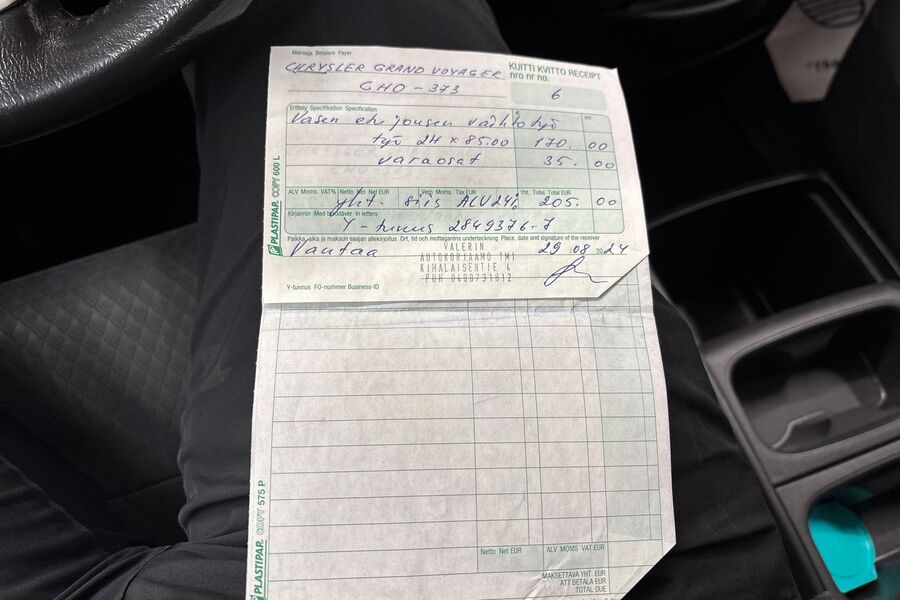 Maksaja Betalare Payer
KUITTI KVITTO RECEIPT
nro nr no.
6
CHRYSLER GRAND VOYAGER
CHO-373
Erittely Specifikation Specification
€
snt
Vasen etujousen vaihtotyö
työ 2H x 85.00 170. 00
varaosat 35. 00
ALV Moms. VAT% Netto Net Net EUR Vero Moms. Tax EUR Yht. Total Total EUR
yht. siis ALV24% 205. 00
Kirjaimin Med bokstäver In letters
Y-tunnus 2849376-7
Paikka, aika ja maksun saajan allekirjoitus Ort, tid och mottagarens underteckning Place, date and signature of the receiver
Vantaa 29 08 2024
VALERIN
AUTOKORJAAMO TMI
KIMALAISENTIE 4
PUH 0400731812
Y-tunnus FO-nummer Business-ID
PLASTIPAP. COPY 600 L
Netto Net EUR ALV MOMS VAT EUR
MAKSETTAVA YHT. EUR
ATT BETALA EUR
TOTAL DUE
PLASTIPAP. COPY 575 P